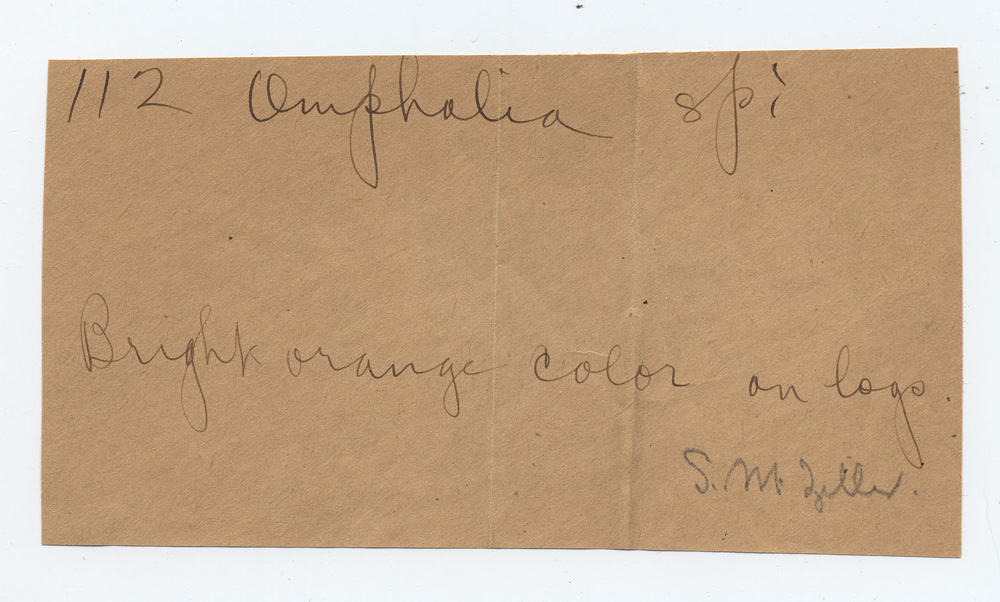 112 Omphalia sp?
Bright orange color on logs.
S. M. Zeller.